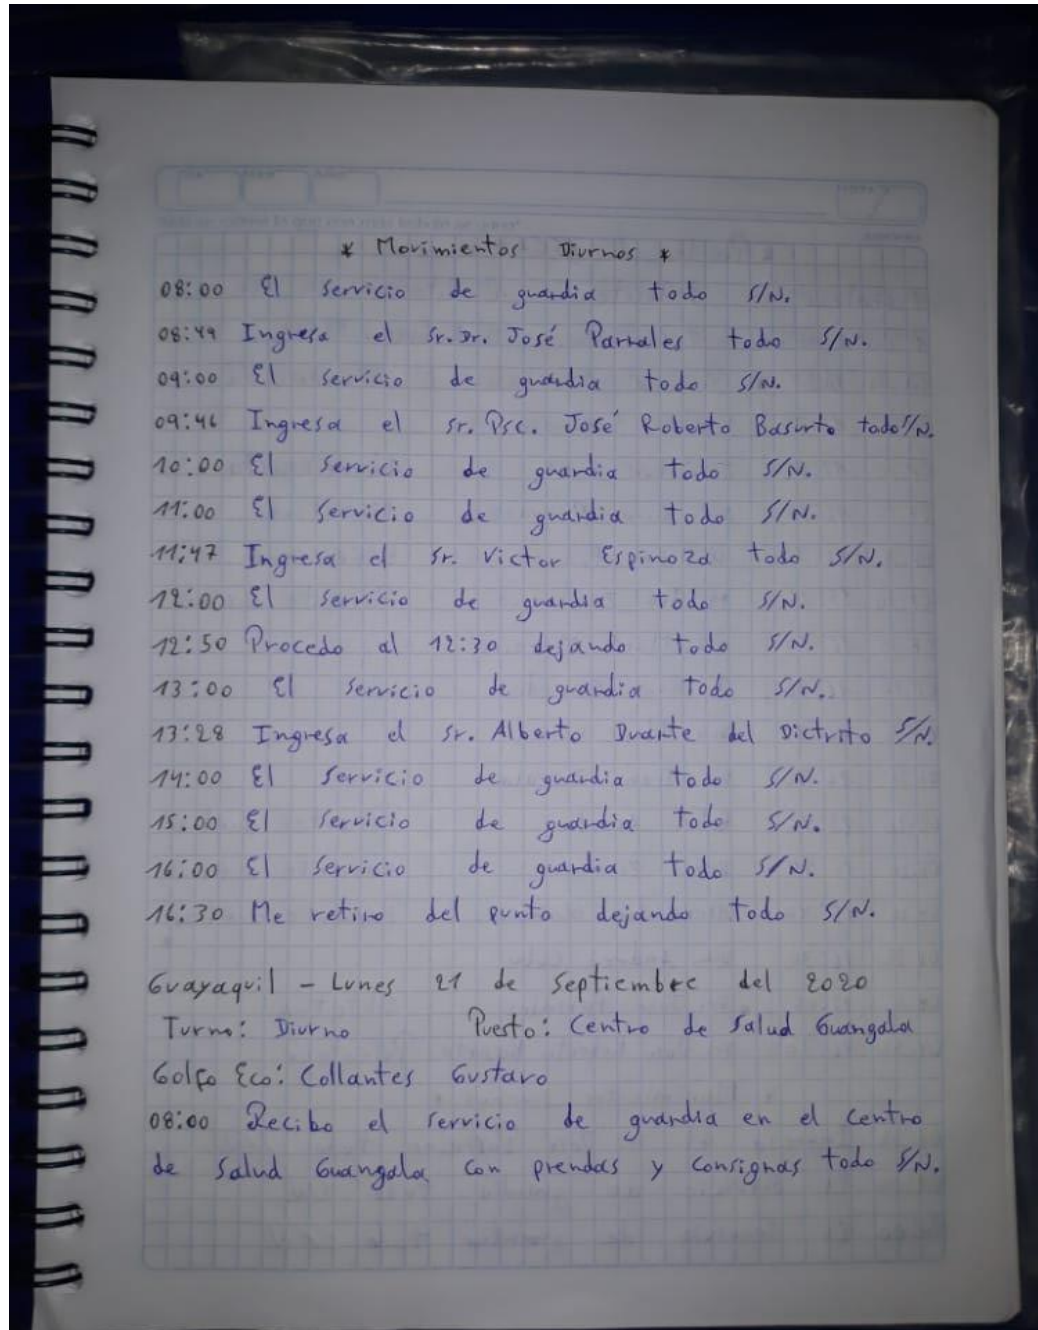 * Movimientos Diurnos *
08:00 El servicio de guardia todo S/N.
08:49 Ingresa el Sr. Dr. José Parrales todo S/N.
09:00 El servicio de guardia todo S/N.
09:46 Ingresa el sr. Psc. José Roberto Basurto todo S/N.
10:00 El servicio de guardia todo S/N.
11:00 El servicio de guardia todo S/N.
11:47 Ingresa el sr. Victor Espinoza todo S/N.
12:00 El servicio de guardia todo S/N.
12:50 Procedo al 12:30 dejando todo S/N.
13:00 El servicio de guardia todo S/N.
13:28 Ingresa el sr. Alberto Duarte del Dictrito S/N.
14:00 El servicio de guardia todo S/N.
15:00 El servicio de guardia todo S/N.
16:00 El servicio de guardia todo S/N.
16:30 Me retiro del punto dejando todo S/N.
Guayaquil - Lunes 21 de Septiembre del 2020
Turno: Diurno Puesto: Centro de Salud Guangala
Golfo Eco: Collantes Gustavo
08:00 Recibo el servicio de guardia en el centro
de Salud Guangala con prendas y consignas todo S/N.